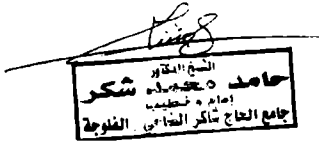 الشيخ الدكتور
حامد محمد شكر
إمام و خطيب
جامع الحاج شاكر الضاحي . الفلوجة